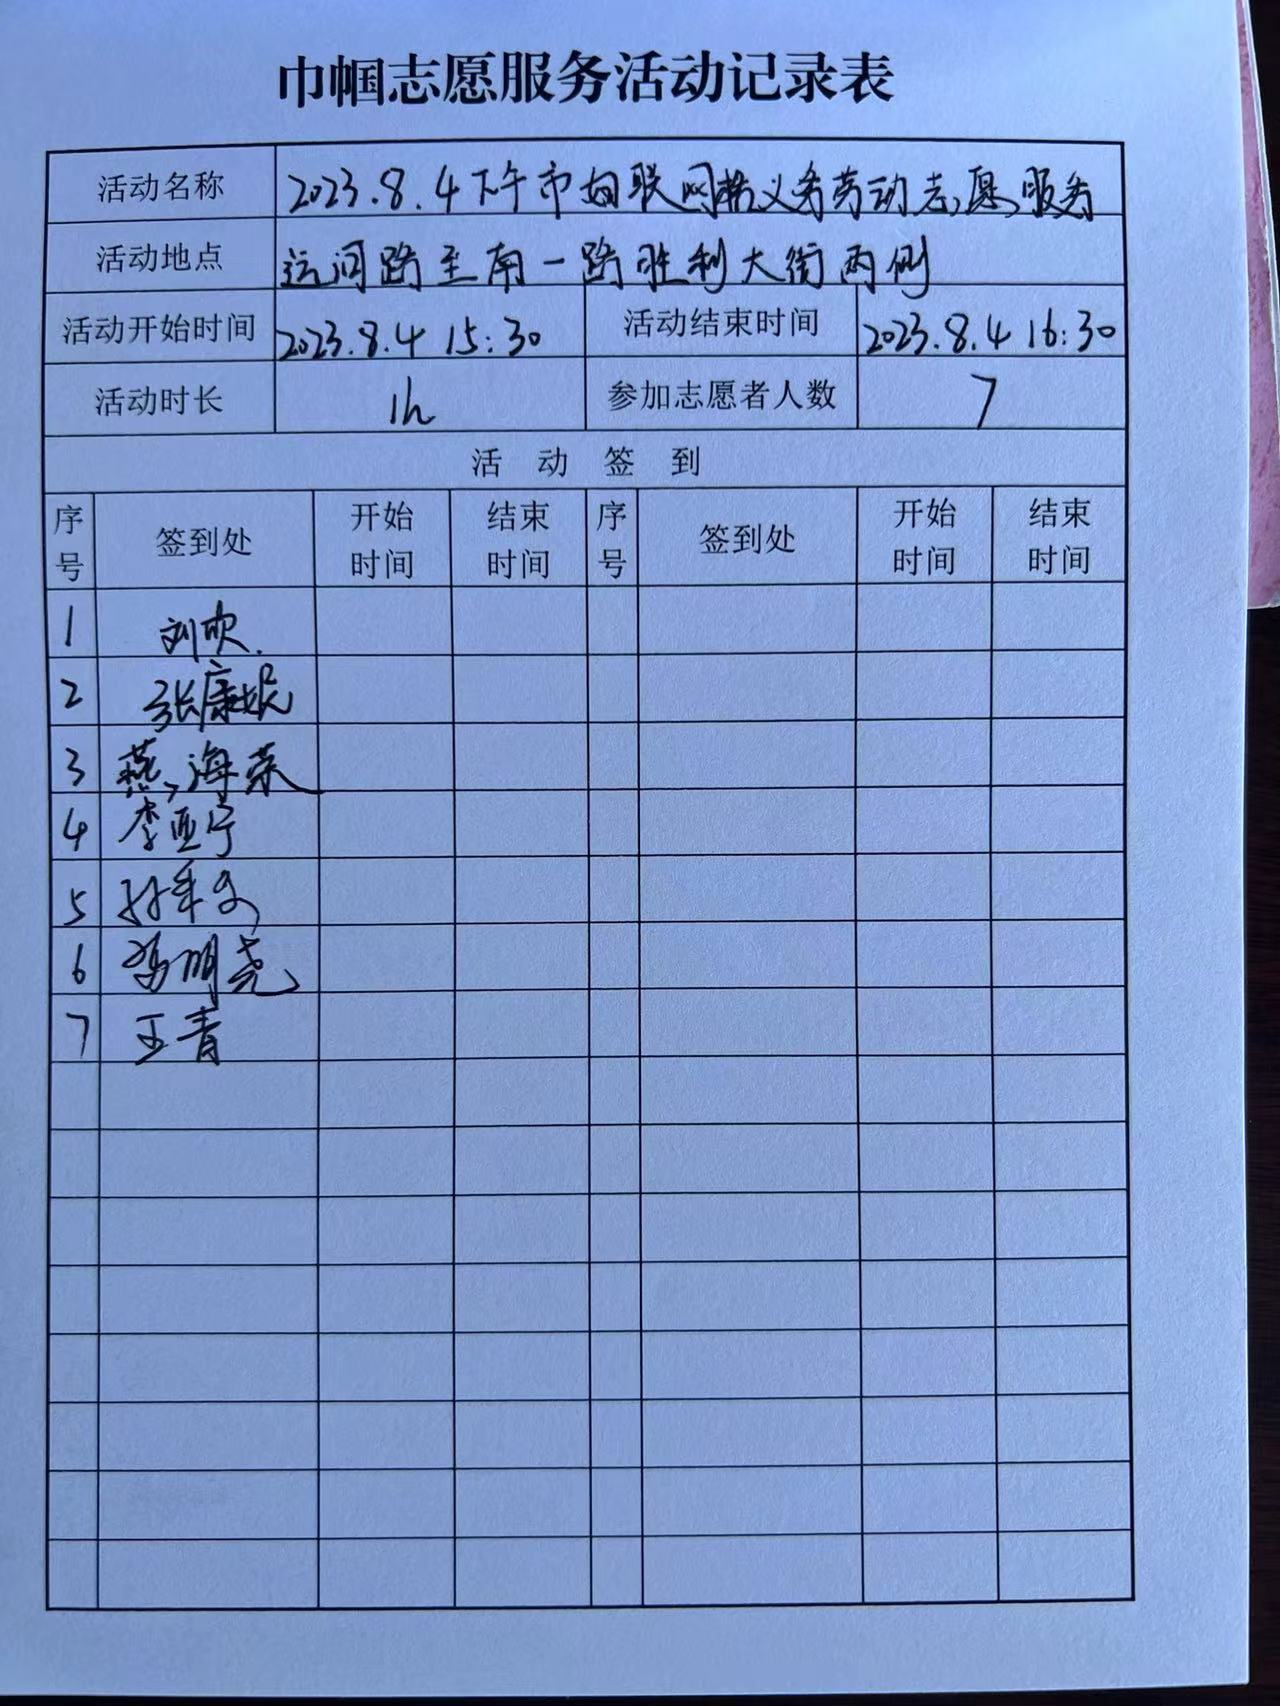 巾帼志愿服务活动记录表
活动名称 2023.8.4下午市妇联网格义务劳动志愿服务
活动地点 运河路至南一路胜利大街两侧
活动开始时间 2023.8.4 15:30 活动结束时间 2023.8.4 16:30
活动时长 1h 参加志愿者人数 7
活动签到
序号 签到处 开始时间 结束时间 序号 签到处 开始时间 结束时间
1 刘
2 张康妮
3 燕海荣
4 李亚宁
5 孙
6 冯明尧
7 王青